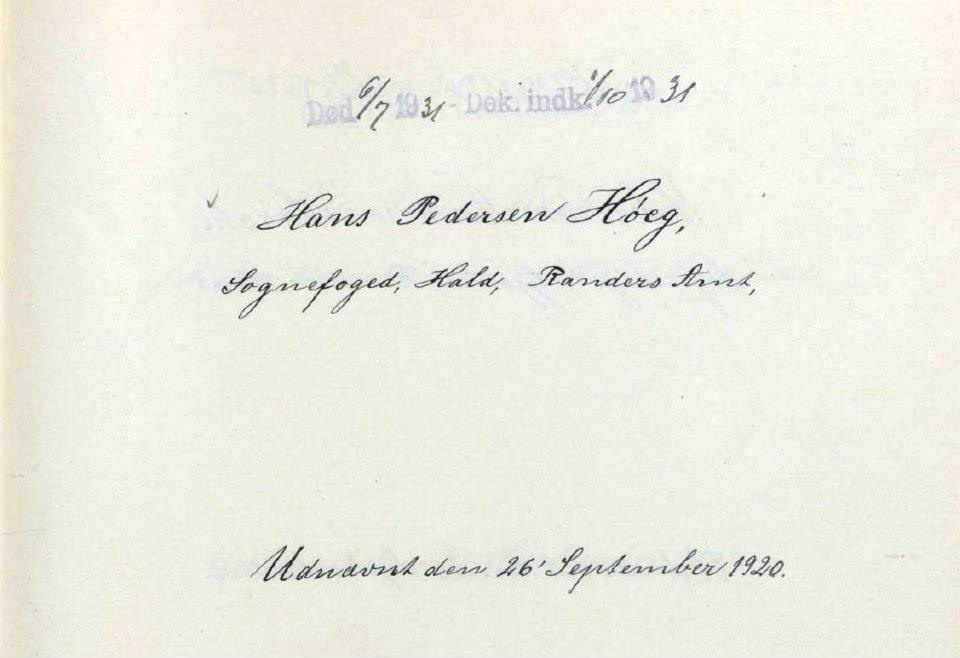 Død 6/7 1931 - Dek. indk. 1/10 1931
Hans Pedersen Höeg,
Sognefoged, Hald, Randers Amt,
Udnævnt den 26' September 1920.